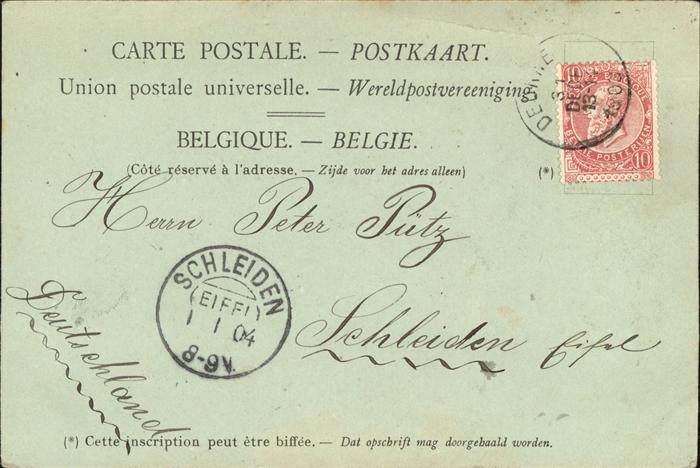 CARTE POSTALE. — POSTKAART.
Union postale universelle. — Wereldpostvereeniging
BELGIQUE. — BELGIE.
(Côté réservé à l'adresse. — Zijde voor het adres alleen) (*)
10
10
POSTERIJEN
Herrn Peter Pütz
SCHLEIDEN
(EIFEL)
1 1 04
8-9V.
Schleiden Eifel
Deutschland
(*) Cette inscription peut être biffée. — Dat opschrift mag doorgehaald worden.